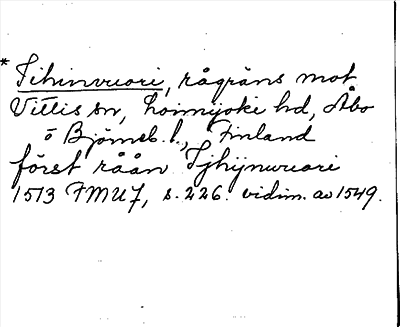 * Tihinvuori, rågräns mot
Vittis sn, Loimijoki hd, Åbo
o Björneb. l., Finland
först råån Tjhijnwuori
1513 FMU 7, s. 226. vidim. av 1549.